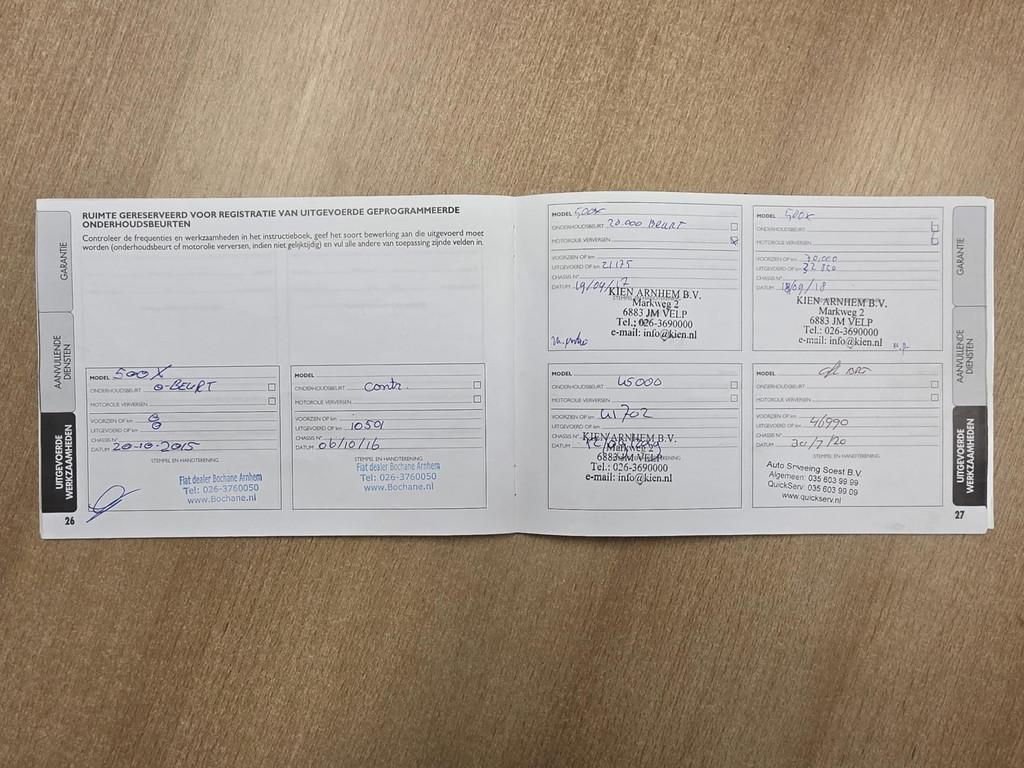 GARANTIE
AANVULLENDE DIENSTEN
UITGEVOERDE WERKZAAMHEDEN
RUIMTE GERESERVEERD VOOR REGISTRATIE VAN UITGEVOERDE GEPROGRAMMEERDE
ONDERHOUDSBEURTEN
Controleer de frequenties en werkzaamheden in het instructieboek, geef het soort bewerking aan die uitgevoerd moet
worden (onderhoudsbeurt of motorolie verversen, indien niet gelijktijdig) en vul alle andere van toepassing zijnde velden in.
MODEL 500X
ONDERHOUDSBEURT 0-BEURT
MOTOROLIE VERVERSEN
VOORZIEN OP km 0
UITGEVOERD OP km 0
CHASSIS N°
DATUM 20-10-2015
STEMPEL EN HANDTEKENING
Fiat dealer Bochane Arnhem
Tel: 026-3760050
www.Bochane.nl
26
MODEL
ONDERHOUDSBEURT Contr.
MOTOROLIE VERVERSEN
VOORZIEN OP km
UITGEVOERD OP km 10501
CHASSIS N°
DATUM 06/10/16
STEMPEL EN HANDTEKENING
Fiat dealer Bochane Arnhem
Tel: 026-3760050
www.Bochane.nl
MODEL 500X
ONDERHOUDSBEURT 20.000 BEURT
MOTOROLIE VERVERSEN
VOORZIEN OP km
UITGEVOERD OP km 21175
CHASSIS N°
DATUM 19/04/17
KIEN ARNHEM B.V.
Markweg 2
6883 JM VELP
Tel.: 026-3690000
e-mail: info@kien.nl
MODEL 500X
ONDERHOUDSBEURT
MOTOROLIE VERVERSEN
VOORZIEN OP km 30.000
UITGEVOERD OP km
CHASSIS N°
DATUM 18/09/18
KIEN ARNHEM B.V.
Markweg 2
6883 JM VELP
Tel.: 026-3690000
e-mail: info@kien.nl
MODEL
ONDERHOUDSBEURT 45000
MOTOROLIE VERVERSEN
VOORZIEN OP km
UITGEVOERD OP km 41702
CHASSIS N°
DATUM
KIEN ARNHEM B.V.
Markweg 2
6883 JM VELP
Tel.: 026-3690000
e-mail: info@kien.nl
MODEL
ONDERHOUDSBEURT
MOTOROLIE VERVERSEN
VOORZIEN OP km
UITGEVOERD OP km 46990
CHASSIS N°
DATUM 30/7/20
STEMPEL EN HANDTEKENING
Auto Soest B.V.
Algemeen: 035 603 99 99
QuickServ: 035 603 99 09
www.quickserv.nl
GARANTIE
AANVULLENDE DIENSTEN
UITGEVOERDE WERKZAAMHEDEN
27